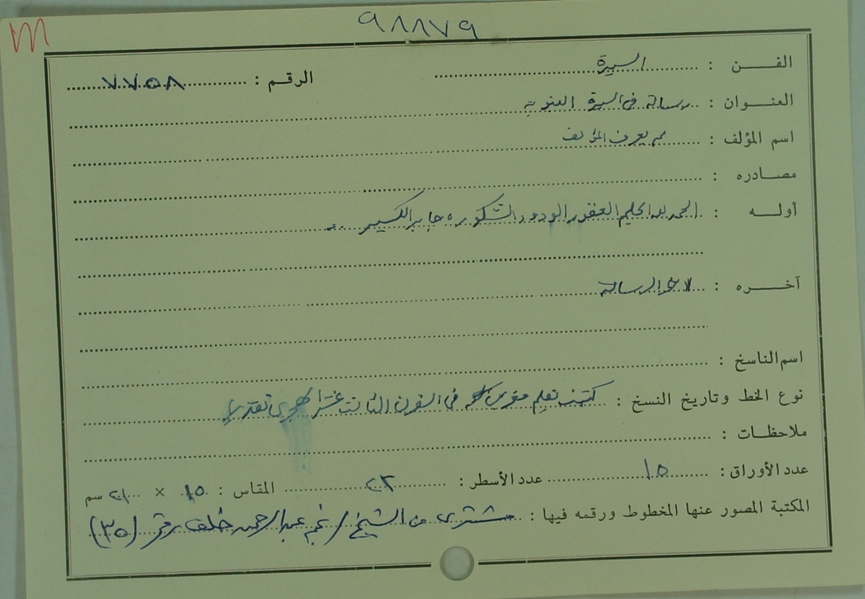 m
٩٨٨٧٩
الفن : السيرة
الرقم : ٧٧٥٨
العنوان : رسالة في السيرة النبوية
اسم المؤلف : لم يعرف المؤلف
مصادره :
أوله : الحمد لله الحليم الغفور الودود الشكور جابر الكسير
آخره : الرسالة
اسم الناسخ :
نوع الخط وتاريخ النسخ : كتبت بقلم في القرن الثالث عشر الهجري تقديرا
ملاحظات :
عدد الأوراق : ١٥ عدد الأسطر : ٢٣ المقاس : ١٥ × ٢١ سم
المكتبة المصور عنها المخطوط ورقمه فيها : مشترى من الشيخ / عبدالرحمن خلف رقم (٣٥)